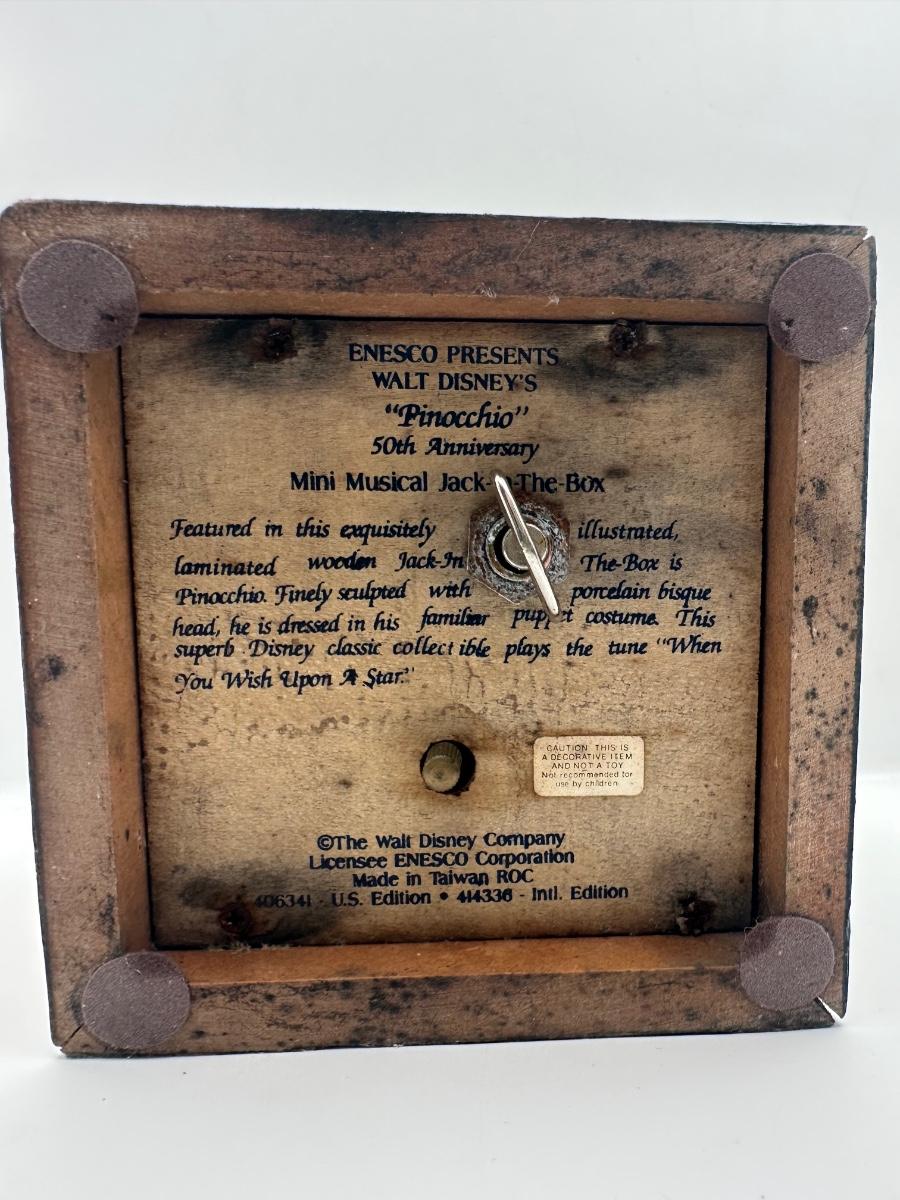 ENESCO PRESENTS
WALT DISNEY'S
"Pinocchio"
50th Anniversary
Mini Musical Jack- -The-Box
Featured in this exquisitely illustrated,
laminated wooden Jack-In The-Box is
Pinocchio. Finely sculpted with porcelain bisque
head, he is dressed in his familiar puppet costume. This
superb Disney classic collectible plays the tune "When
You Wish Upon A Star."
CAUTION: THIS IS
A DECORATIVE ITEM
AND NOT A TOY
Not recommended for
use by children.
©The Walt Disney Company
Licensee ENESCO Corporation
Made in Taiwan ROC
406341 - U.S. Edition • 414336 - Intl. Edition